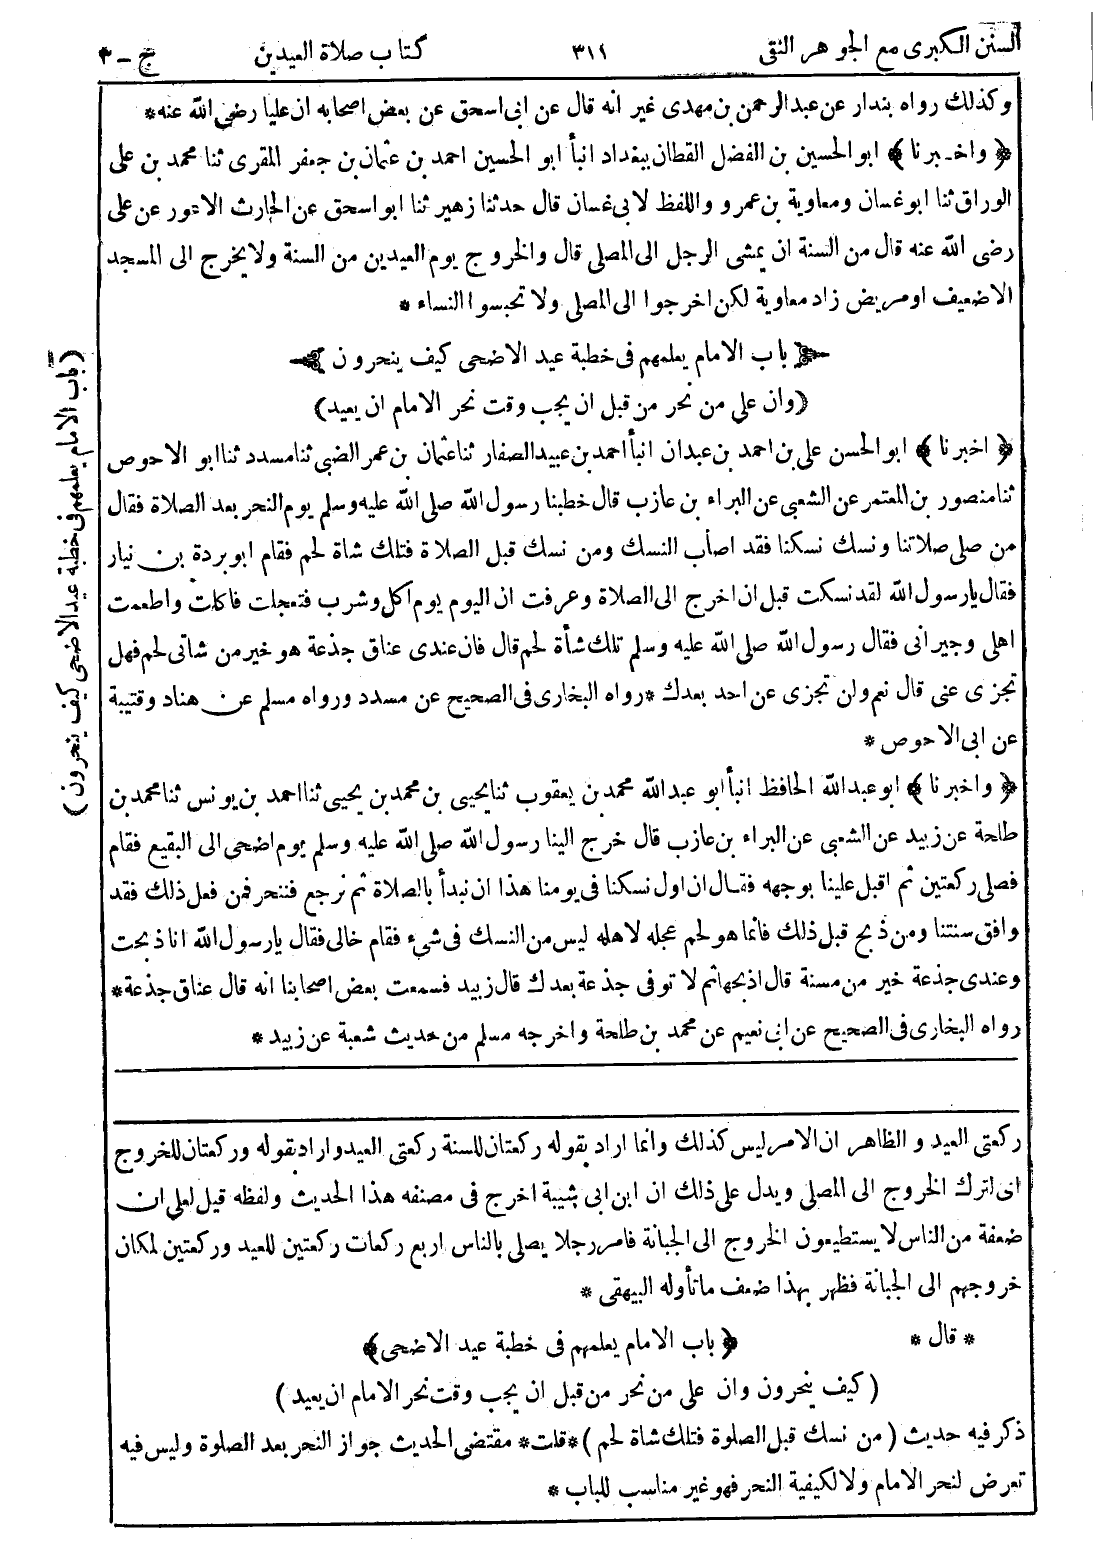 السنن الكبرى مع الجوهر النقى ٣١١ كتاب صلاة العيدين ج - ٣
وكذلك رواه بندار عن عبدالرحمن بن مهدى غير انه قال عن ابى اسحق عن بعض اصحابه ان عليا رضى الله عنه *
﴿ واخبرنا ﴾ ابوالحسين بن الفضل القطان ببغداد انبأ ابو الحسين احمد بن عثمان بن جعفر المقرى ثنا محمد بن على
الوراق ثنا ابوغسان ومعاوية بن عمرو واللفظ لابى غسان قال حدثنا زهير ثنا ابواسحق عن الحارث الاعور عن على
رضى الله عنه قال من السنة ان يمشى الرجل الى المصلى قال والخروج يوم العيدين من السنة ولا يخرج الى المسجد
الاضعيف اومريض زاد معاوية لكن اخرجوا الى المصلى ولا تحبسوا النساء *
باب الامام يعلمهم فى خطبة عيد الاضحى كيف ينحرون
(وان على من نحر من قبل ان يجب وقت نحر الامام ان يعيد)
﴿ اخبرنا ﴾ ابوالحسن على بن احمد بن عبدان انبأ احمد بن عبيد الصفار ثنا عثمان بن عمر الضبى ثنا مسدد ثنا ابو الاحوص
ثنا منصور بن المعتمر عن الشعبى عن البراء بن عازب قال خطبنا رسول الله صلى الله عليه وسلم يوم النحر بعد الصلاة فقال
من صلى صلاتنا ونسك نسكنا فقد اصاب النسك ومن نسك قبل الصلاة فتلك شاة لحم فقام ابوبردة بن نيار
فقال يارسول الله لقد نسكت قبل ان اخرج الى الصلاة وعرفت ان اليوم يوم اكل وشرب فتعجلت فاكلت واطعمت
اهلى وجيرانى فقال رسول الله صلى الله عليه وسلم تلك شأة لحم قال فان عندى عناق جذعة هو خير من شاتى لحم فهل
تجزى عنى قال نعم ولن تجزى عن احد بعدك *رواه البخارى فى الصحيح عن مسدد ورواه مسلم عن هناد وقتيبة
عن ابى الاحوص *
﴿ واخبرنا ﴾ ابوعبدالله الحافظ انبأ ابو عبدالله محمد بن يعقوب ثنا يحيى بن محمد بن يحيى ثنا احمد بن يونس ثنا محمد بن
طلحة عن زبيد عن الشعبى عن البراء بن عازب قال خرج الينا رسول الله صلى الله عليه وسلم يوم اضحى الى البقيع فقام
فصلى ركعتين ثم اقبل علينا بوجهه فقال ان اول نسكنا فى يومنا هذا ان نبدأ بالصلاة ثم نرجع فننحر فمن فعل ذلك فقد
وافق سنتنا ومن ذبح قبل ذلك فانما هو لحم عجله لاهله ليس من النسك فى شىء فقام خالى فقال يارسول الله انا ذبحت
وعندى جذعة خير من مسنة قال اذبحها ثم لا توفى جذعة بعدك قال زبيد فسمعت بعض اصحابنا انه قال عناق جذعة*
رواه البخارى فى الصحيح عن ابى نعيم عن محمد بن طلحة واخرجه مسلم من حديث شعبة عن زبيد *
(باب الامام يعلمهم فى خطبة عيد الاضحى كيف ينحرون)
ركعتى العيد و الظاهر ان الامر ليس كذلك وانما اراد بقوله ركعتان للسنة ركعتى العيد واراد بقوله وركعتان للخروج
اى لترك الخروج الى المصلى ويدل على ذلك ان ابن ابى شيبة اخرج فى مصنفه هذا الحديث ولفظه قيل لعلى ان
ضعفة من الناس لا يستطيعون الخروج الى الجبانة فامر رجلا يصلى بالناس اربع ركعات ركعتين للعيد وركعتين لمكان
خروجهم الى الجبانة فظهر بهذا ضعف ما تأوله البيهقى *
* قال * ﴿ باب الامام يعلمهم فى خطبة عيد الاضحى﴾
( كيف ينحرون وان على من نحر من قبل ان يجب وقت نحر الامام ان يعيد )
ذكر فيه حديث ( من نسك قبل الصلوة فتلك شاة لحم ) *قلت* مقتضى الحديث جواز النحر بعد الصلوة وليس فيه
تعرض لنحر الامام ولا لكيفية النحر فهو غير مناسب للباب *